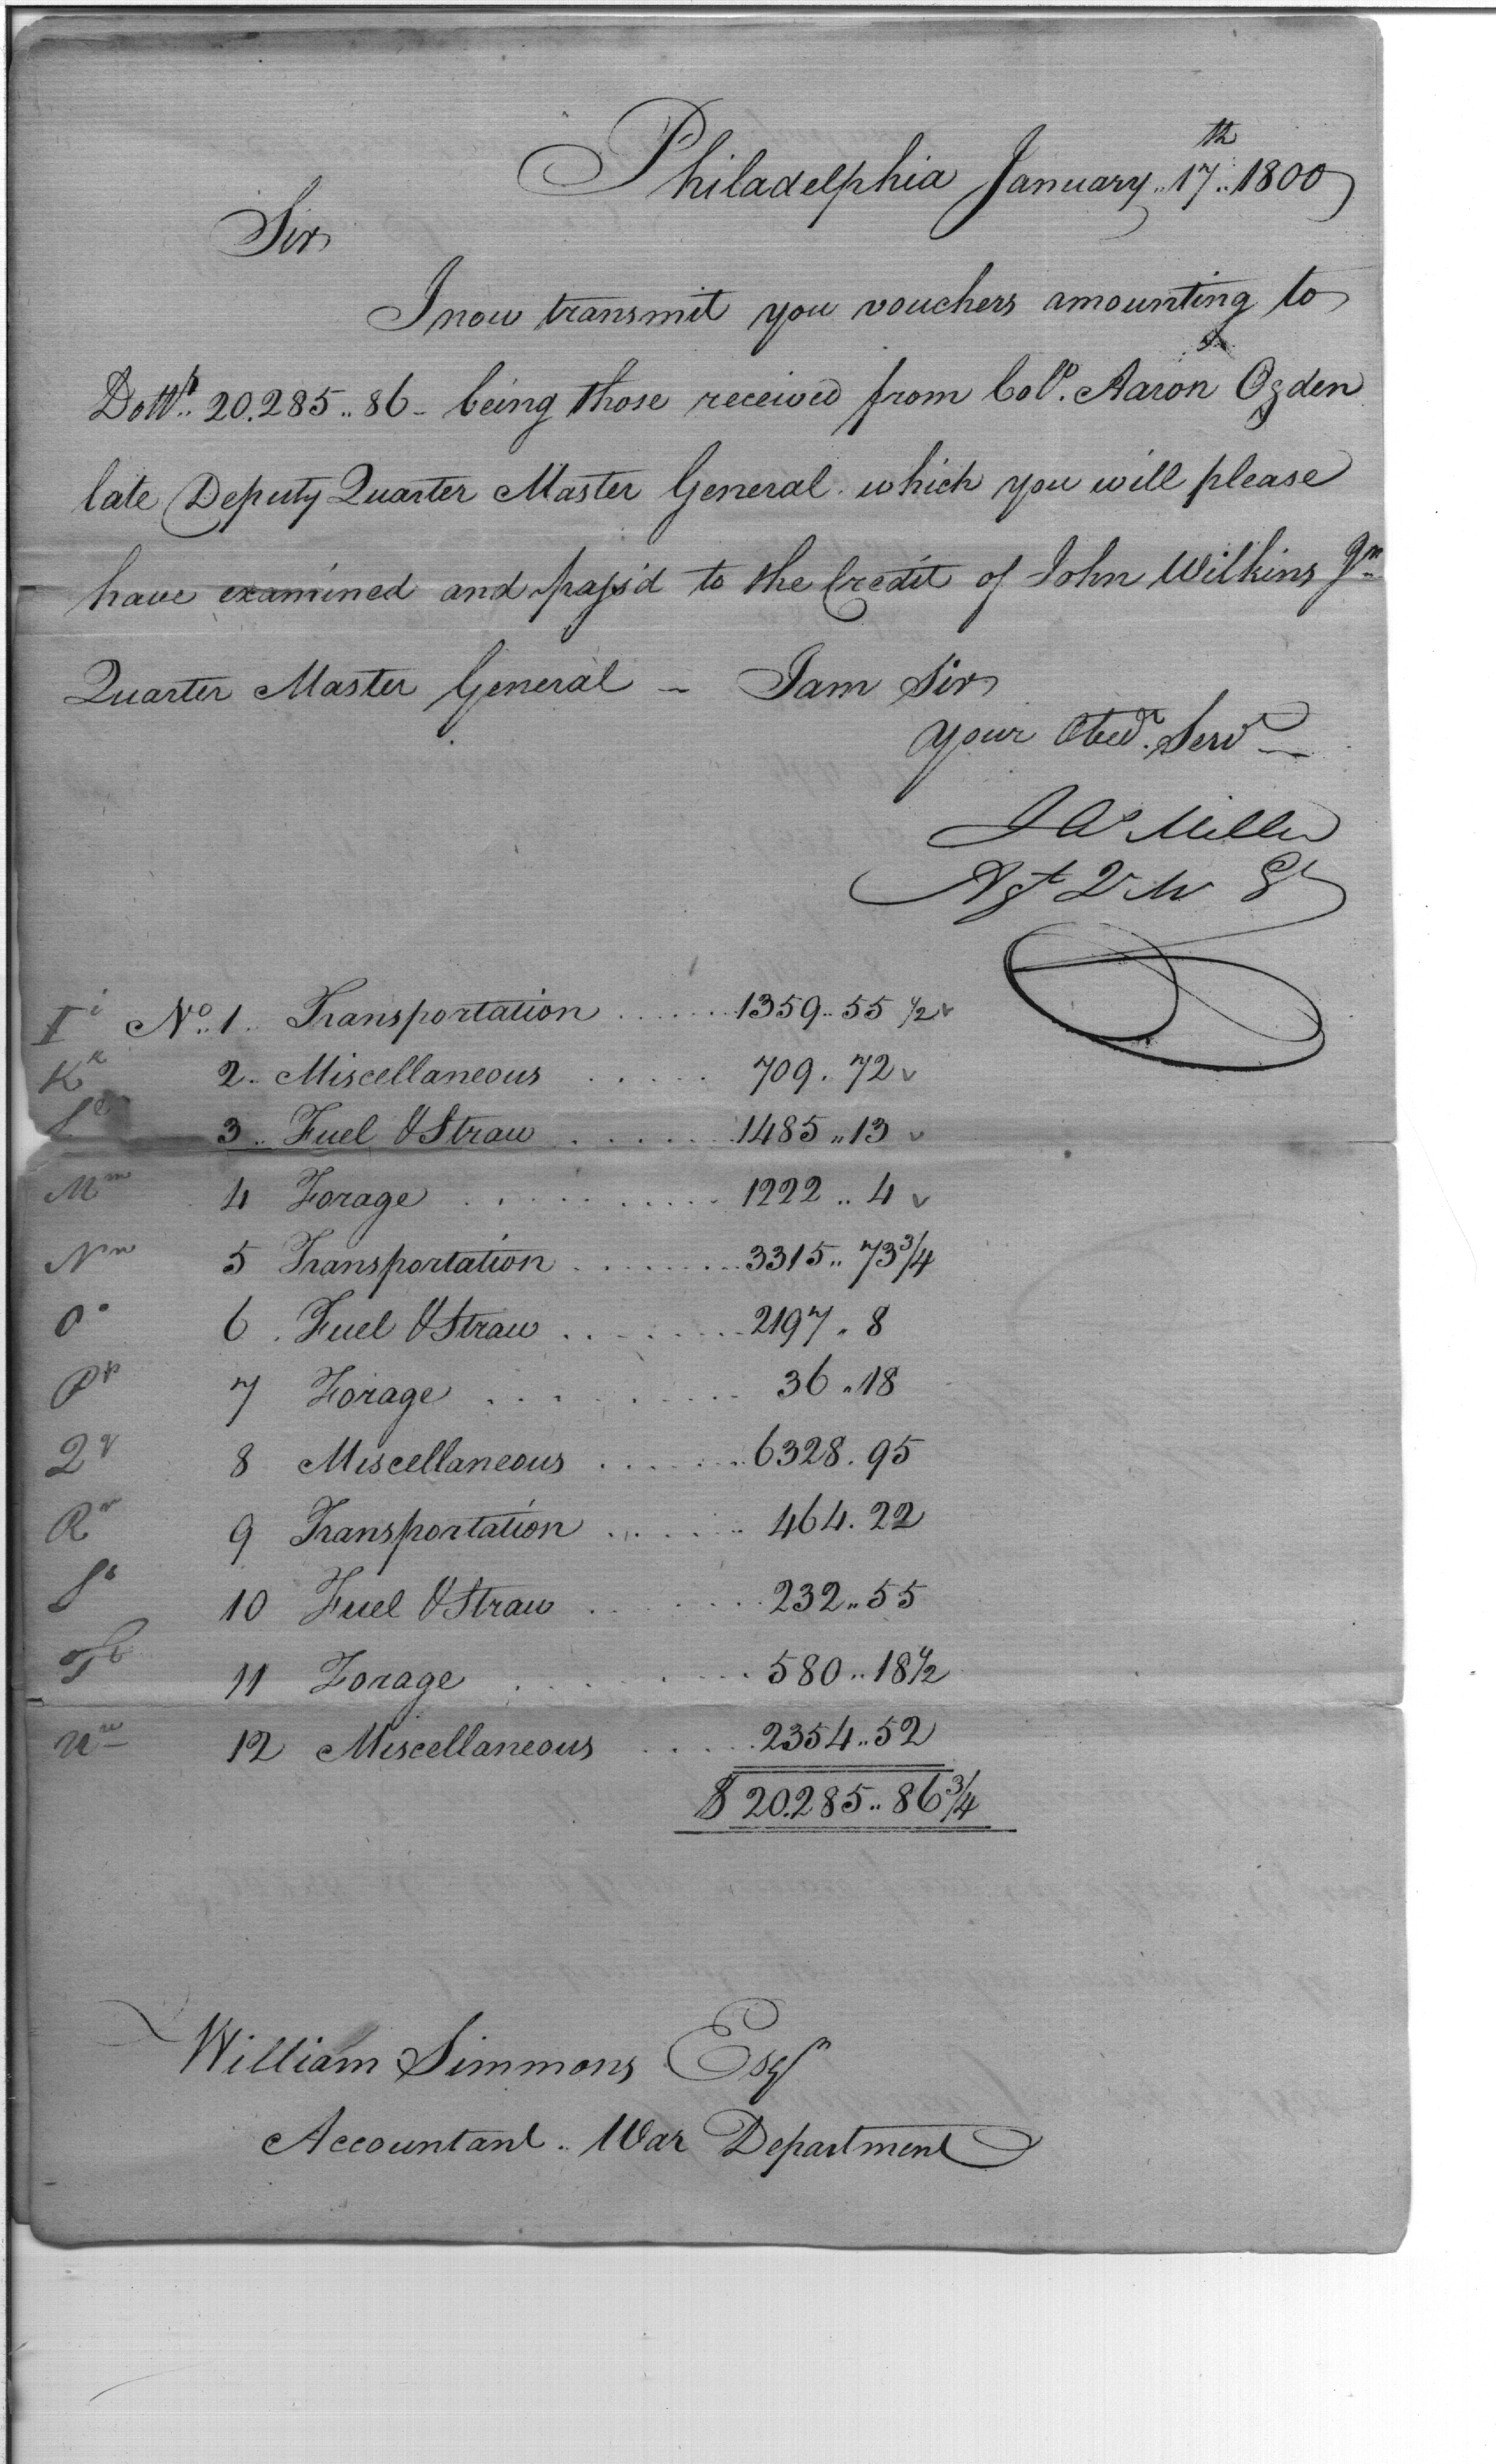 Philadelphia January..17th..1800
Sir
I now transmit you vouchers amounting to
Dollrs.. 20.285..86 - being those received from Colo. Aaron Ogden
late Deputy Quarter Master General. which you will please
have examined and pass'd to the Credit of John Wilkins Jnr
Quarter Master General - I am Sir
Your Obedt. Servt
Miller
Agt Q M Gl
I i No..1.. Transportation ....... 1359..55 1/2 v
K k 2.. Miscellaneous ..... 709. 72 v
3.. Fuel & Straw ...... 1485..13 v
M m 4 Forage .......... 1222..4 v
N n 5 Transportation ........ 3315..73 3/4
O o 6. Fuel & Straw ....... 2197.8
P p 7 Forage ........ 36.18
Q q 8 Miscellaneous ...... 6328.95
R r 9 Transportation ...... 464.22
S s 10 Fuel & Straw ...... 232..55
T t 11 Forage ...... 580..18 1/2
U u 12 Miscellaneous ..... 2354..52
$ 20.285..86 3/4
William Simmons Esqr
Accountant.. War Department